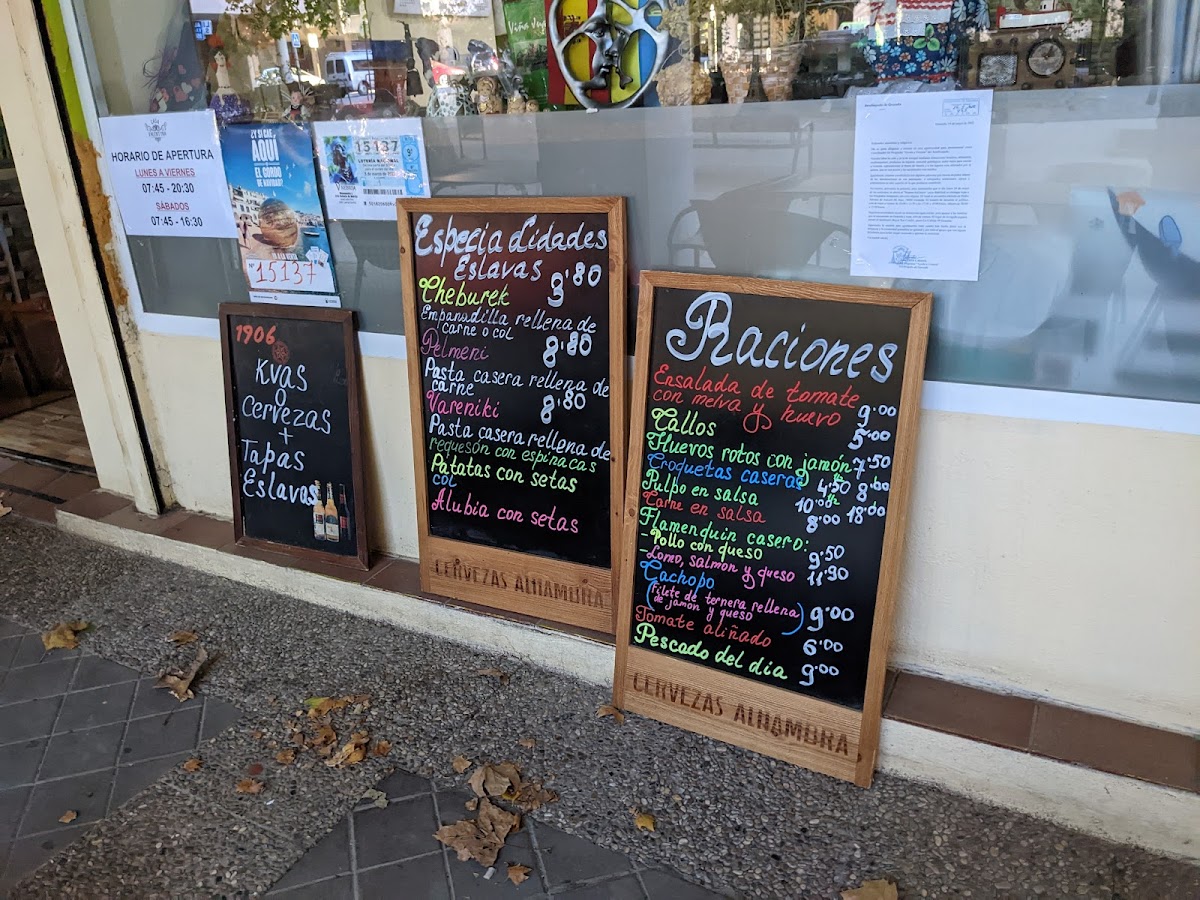 HORARIO DE APERTURA
LUNES A VIERNES
07:45 - 20:30
SÁBADOS
07:45 - 16:30
¿Y SI CAE
AQUÍ
EL GORDO
DE NAVIDAD?
Nº
15137
LOTERÍA NACIONAL
15137
1906
Kvas
Cervezas
+
Tapas
Eslavas
Especialidades
Eslavas
Cheburek 3'80
Empanadilla rellena de
carne o col
Pelmeni 8'80
Pasta casera rellena de
carne
Vareniki 8'80
Pasta casera rellena de
requesón con espinacas
Patatas con setas
col
Alubia con setas
CERVEZAS ALHAMBRA
Raciones
Ensalada de tomate
con melva y huevo 9'00
Tallos 5'00
Huevos rotos con jamón 7'50
Croquetas caseras 4'50 8'00
Pulpo en salsa 10'00 18'00
Carne en salsa 8'00
Flamenquin casero:
-Pollo con queso 9'50
-Lomo, salmón y queso 11'90
Cachopo
(Filete de ternera rellena
de jamón y queso) 9'00
Tomate aliñado 6'00
Pescado del dia 9'00
CERVEZAS ALHAMBRA